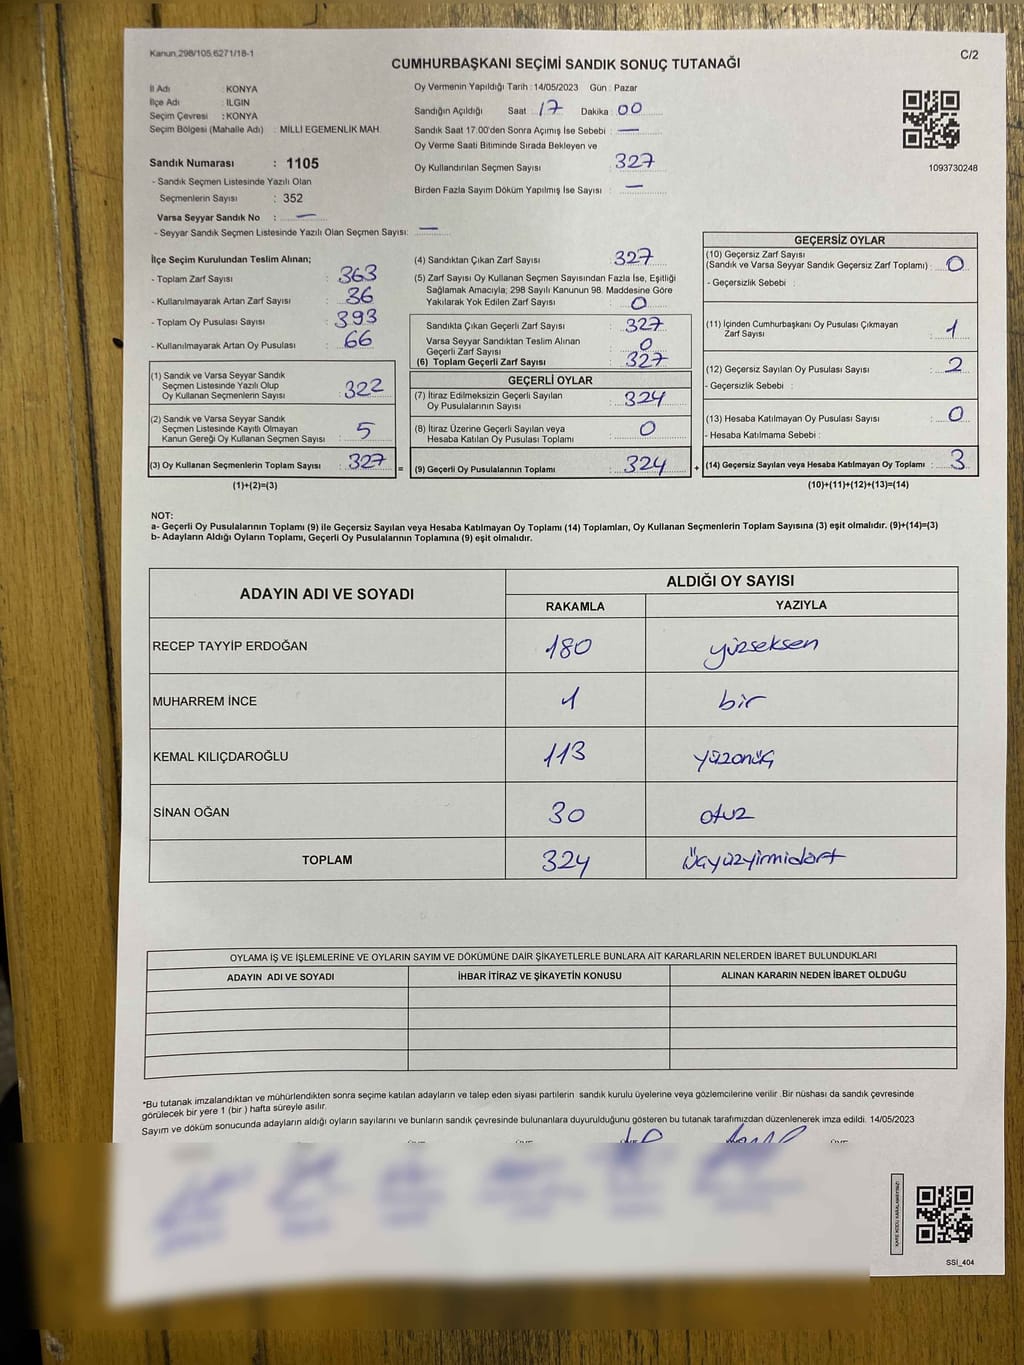 Kanun 298/105,6271/18-1
C/2
CUMHURBAŞKANI SEÇİMİ SANDIK SONUÇ TUTANAĞI
İl Adı : KONYA
İlçe Adı : ILGIN
Seçim Çevresi : KONYA
Seçim Bölgesi (Mahalle Adı) : MİLLİ EGEMENLİK MAH.
Sandık Numarası : 1105
- Sandık Seçmen Listesinde Yazılı Olan
Seçmenlerin Sayısı : 352
Varsa Seyyar Sandık No : —
- Seyyar Sandık Seçmen Listesinde Yazılı Olan Seçmen Sayısı: —
Oy Vermenin Yapıldığı Tarih : 14/05/2023 Gün : Pazar
Sandığın Açıldığı Saat : 17 Dakika : 00
Sandık Saat 17.00'den Sonra Açımış İse Sebebi : —
Oy Verme Saati Bitiminde Sırada Bekleyen ve
Oy Kullandırılan Seçmen Sayısı : 327
Birden Fazla Sayım Döküm Yapılmış İse Sayısı : —
1093730248
İlçe Seçim Kurulundan Teslim Alınan;
- Toplam Zarf Sayısı : 363
- Kullanılmayarak Artan Zarf Sayısı : 36
- Toplam Oy Pusulası Sayısı : 393
- Kullanılmayarak Artan Oy Pusulası : 66
(1) Sandık ve Varsa Seyyar Sandık
Seçmen Listesinde Yazılı Olup
Oy Kullanan Seçmenlerin Sayısı : 322
(2) Sandık ve Varsa Seyyar Sandık
Seçmen Listesinde Kayıtlı Olmayan
Kanun Gereği Oy Kullanan Seçmen Sayısı : 5
(3) Oy Kullanan Seçmenlerin Toplam Sayısı : 327
(1)+(2)=(3)
=
(4) Sandıktan Çıkan Zarf Sayısı : 327
(5) Zarf Sayısı Oy Kullanan Seçmen Sayısından Fazla İse, Eşitliği
Sağlamak Amacıyla; 298 Sayılı Kanunun 98. Maddesine Göre
Yakılarak Yok Edilen Zarf Sayısı : 0
Sandıkta Çıkan Geçerli Zarf Sayısı : 327
Varsa Seyyar Sandıktan Teslim Alınan
Geçerli Zarf Sayısı : 0
(6) Toplam Geçerli Zarf Sayısı : 327
GEÇERLİ OYLAR
(7) İtiraz Edilmeksizin Geçerli Sayılan
Oy Pusulalarının Sayısı : 324
(8) İtiraz Üzerine Geçerli Sayılan veya
Hesaba Katılan Oy Pusulası Toplamı : 0
(9) Geçerli Oy Pusulalarının Toplamı : 324
+
GEÇERSİZ OYLAR
(10) Geçersiz Zarf Sayısı
(Sandık ve Varsa Seyyar Sandık Geçersiz Zarf Toplamı) : 0
- Geçersizlik Sebebi :
(11) İçinden Cumhurbaşkanı Oy Pusulası Çıkmayan
Zarf Sayısı : 1
(12) Geçersiz Sayılan Oy Pusulası Sayısı : 2
- Geçersizlik Sebebi :
(13) Hesaba Katılmayan Oy Pusulası Sayısı : 0
- Hesaba Katılmama Sebebi :
(14) Geçersiz Sayılan veya Hesaba Katılmayan Oy Toplamı : 3
(10)+(11)+(12)+(13)=(14)
NOT:
a- Geçerli Oy Pusulalarının Toplamı (9) ile Geçersiz Sayılan veya Hesaba Katılmayan Oy Toplamı (14) Toplamları, Oy Kullanan Seçmenlerin Toplam Sayısına (3) eşit olmalıdır. (9)+(14)=(3)
b- Adayların Aldığı Oyların Toplamı, Geçerli Oy Pusulalarının Toplamına (9) eşit olmalıdır.
ADAYIN ADI VE SOYADI
ALDIĞI OY SAYISI
RAKAMLA YAZIYLA
RECEP TAYYİP ERDOĞAN 180 yüzseksen
MUHARREM İNCE 1 bir
KEMAL KILIÇDAROĞLU 113 yüzonüç
SİNAN OĞAN 30 otuz
TOPLAM 324 üçyüzyirmidört
OYLAMA İŞ VE İŞLEMLERİNE VE OYLARIN SAYIM VE DÖKÜMÜNE DAİR ŞİKAYETLERLE BUNLARA AİT KARARLARIN NELERDEN İBARET BULUNDUKLARI
ADAYIN ADI VE SOYADI İHBAR İTİRAZ VE ŞİKAYETİN KONUSU ALINAN KARARIN NEDEN İBARET OLDUĞU
*Bu tutanak imzalandıktan ve mühürlendikten sonra seçime katılan adayların ve talep eden siyasi partilerin sandık kurulu üyelerine veya gözlemcilerine verilir .Bir nüshası da sandık çevresinde
görülecek bir yere 1 (bir ) hafta süreyle asılır.
Sayım ve döküm sonucunda adayların aldığı oyların sayılarını ve bunların sandık çevresinde bulunanlara duyurulduğunu gösteren bu tutanak tarafımızdan düzenlenerek imza edildi. 14/05/2023
SSI_404